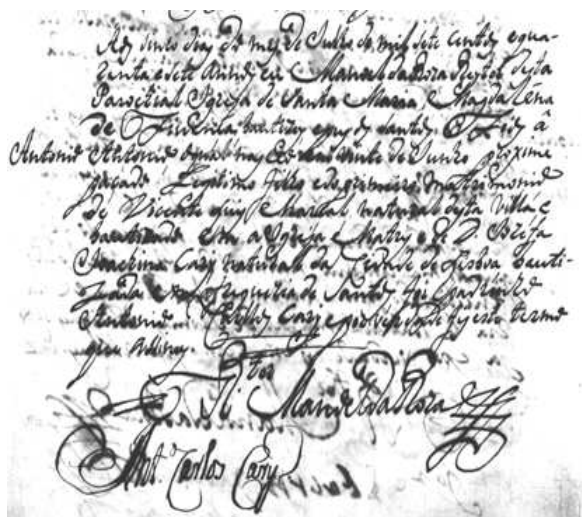 Aos sinco dias do mes de Julho de mil sete centos e qua-
renta e sete annos eu Manoel da Roza Reytor desta
Parochial Igreja de Santa Maria Magdalena
de baptizey e puz os santos oleos â
Antonio Antonio que nasceo aos vinte de Junho proximo
paçado Legitimo filho e do primeiro matrimonio
de Vicente Luiz Marçal natural desta Villa e
bautizado em a Igreja Matriz e de D. Brisa
Joachina Cary natural da Cidade de Lisboa bauti-
zada na freguezia de Santos foi padrinho
Antonio Carlos Cary e por verdade fiz este termo
que asiney.
Rtor
Manoel da Roza
Antº Carlos Cary